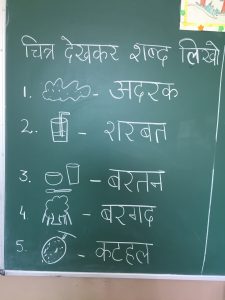 चित्र देखकर शब्द लिखो
1. - अदरक
2. - शरबत
3. - बरतन
4 - बरगद
5. - कटहल